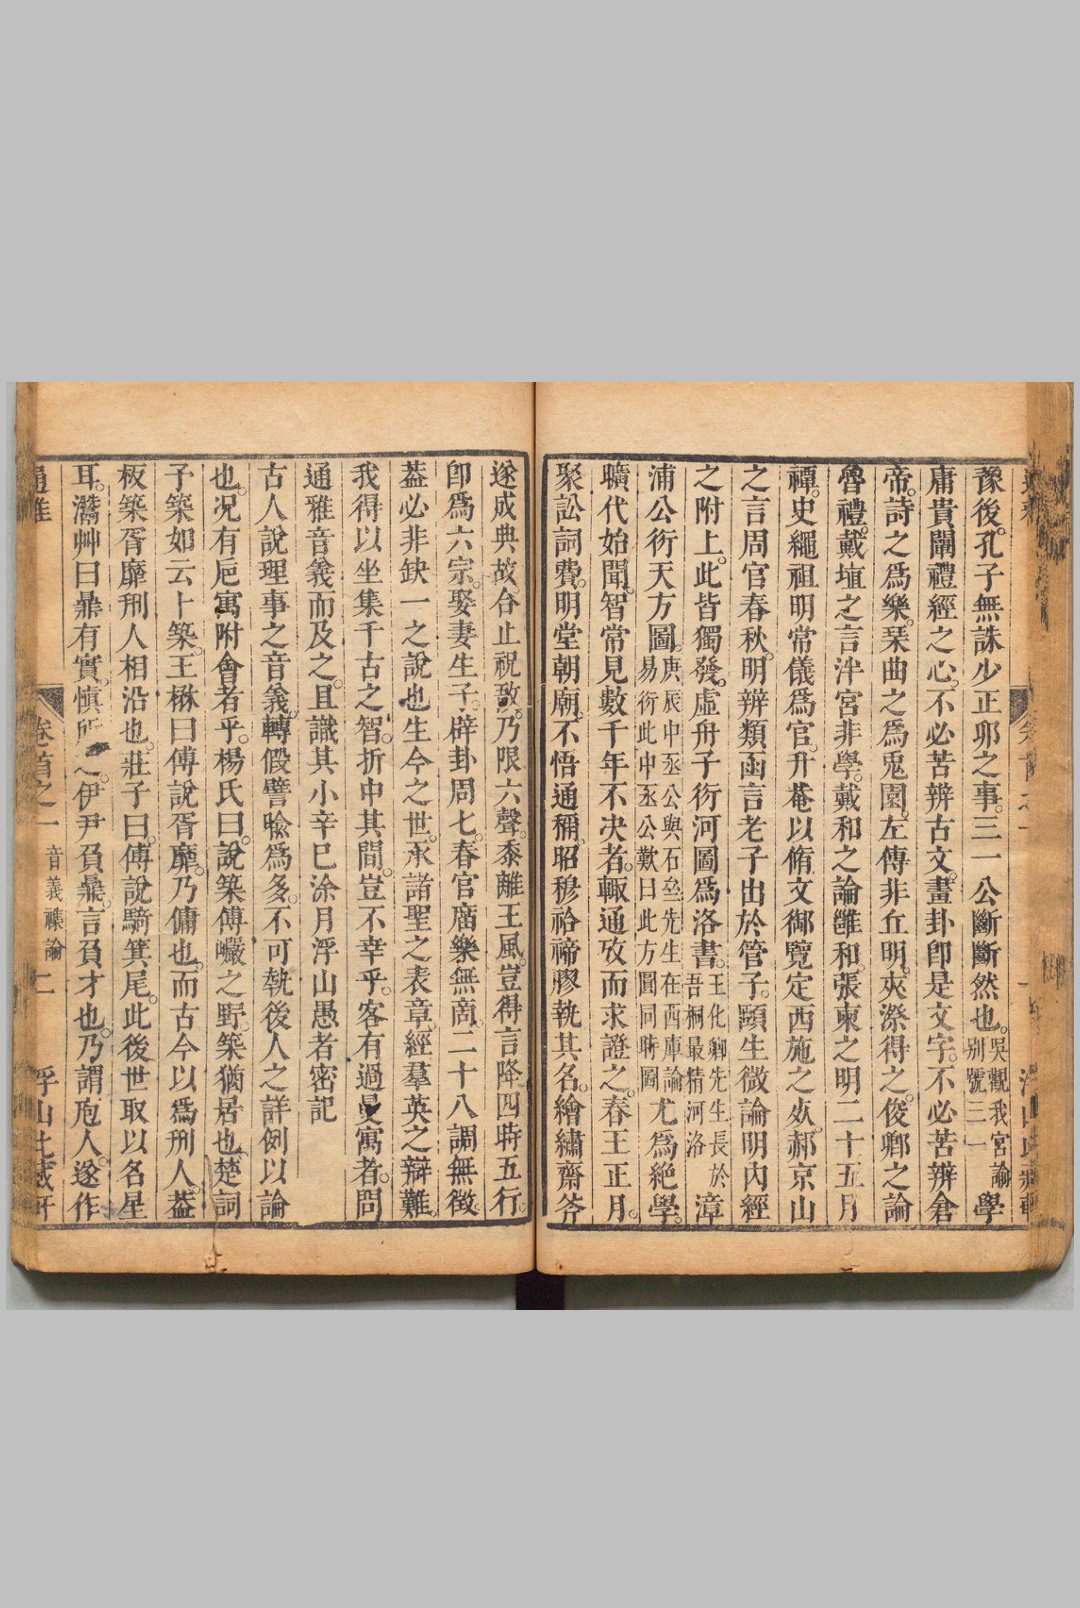 豫後孔子無誅少正卯之事三一公斷斷然也吳觀我宮諭別號三一學
庸貴闡禮經之心不必苦辨古文畫卦卽是文字不必苦辨倉
帝詩之爲樂琹曲之爲兎園左傳非丘明夾漈得之俊卿之論
魯禮戴埴之言泮宮非學戴和之論雝和張東之明二十五月
禫史繩祖明常儀爲官升菴以脩文御覽定西施之㳒郝京山
之言周官春秋明辨類函言老子出於管子顕生微論明內經
之附上此皆獨發虛舟子衍河圖爲洛書王化卿先生長於吾桐最精河洛漳
浦公衍天方圖庚辰中丞公與石叁先生在西庫論易衍此中丞公歎曰此方圓同時圖尤爲絶學
曠代始聞智常見數千年不決者輙通攷而求證之春王正月
聚訟詞費明堂朝廟不悟通稱昭穆祫禘膠執其名繪繡齋斧
遂成典故合止祝敔乃限六聲黍離王風豈得言降四時五行
卽爲六宗娶妻生子辟卦周七春官廣樂無商二十八調無徵
葢必非缺一之說也生今之世承諸聖之表章經羣英之辯難
我得以坐集千古之智折中其間豈不幸乎客有過曼寓者問
通雅音義而及之且識其小辛巳涂月浮山愚者密記
古人說理事之音義轉假譬喩爲多不可執後人之詳例以論
也况有巵寓附會者乎楊氏曰說築傅巖之野築猶居也楚詞
予築如云卜築王楙曰傅說胥靡乃傭也而古今以爲刑人葢
板築胥靡刑人相沿也莊子曰傅說騎箕尾此後世取以名星
耳灊艸曰鼎有實慎所之伊尹負鼎言負才也乃謂庖人遂作
通雅 卷首之一 音義襍論 二 浮山此藏軒